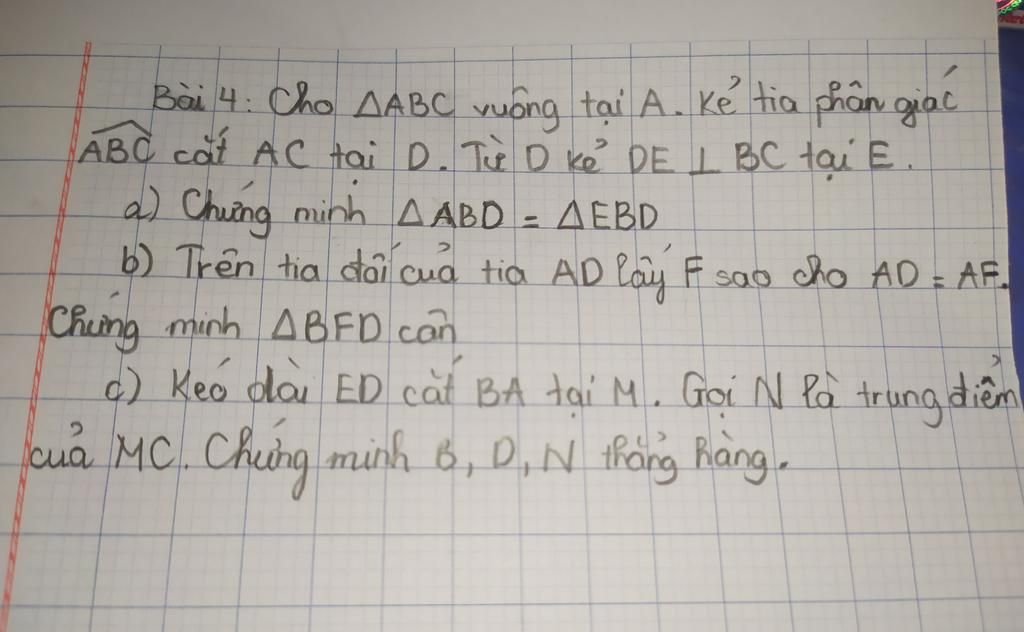 Bài 4: Cho ΔABC vuông tại A. Kẻ tia phân giác
\widehat{ABC} cắt AC tại D. Từ D kẻ DE ⊥ BC tại E.
a) Chứng minh ΔABD = ΔEBD
b) Trên tia đối của tia AD lấy F sao cho AD = AF.
Chứng minh ΔBFD cân
c) Kéo dài ED cắt BA tại M. Gọi N là trung điểm
của MC. Chứng minh B, D, N thẳng hàng.